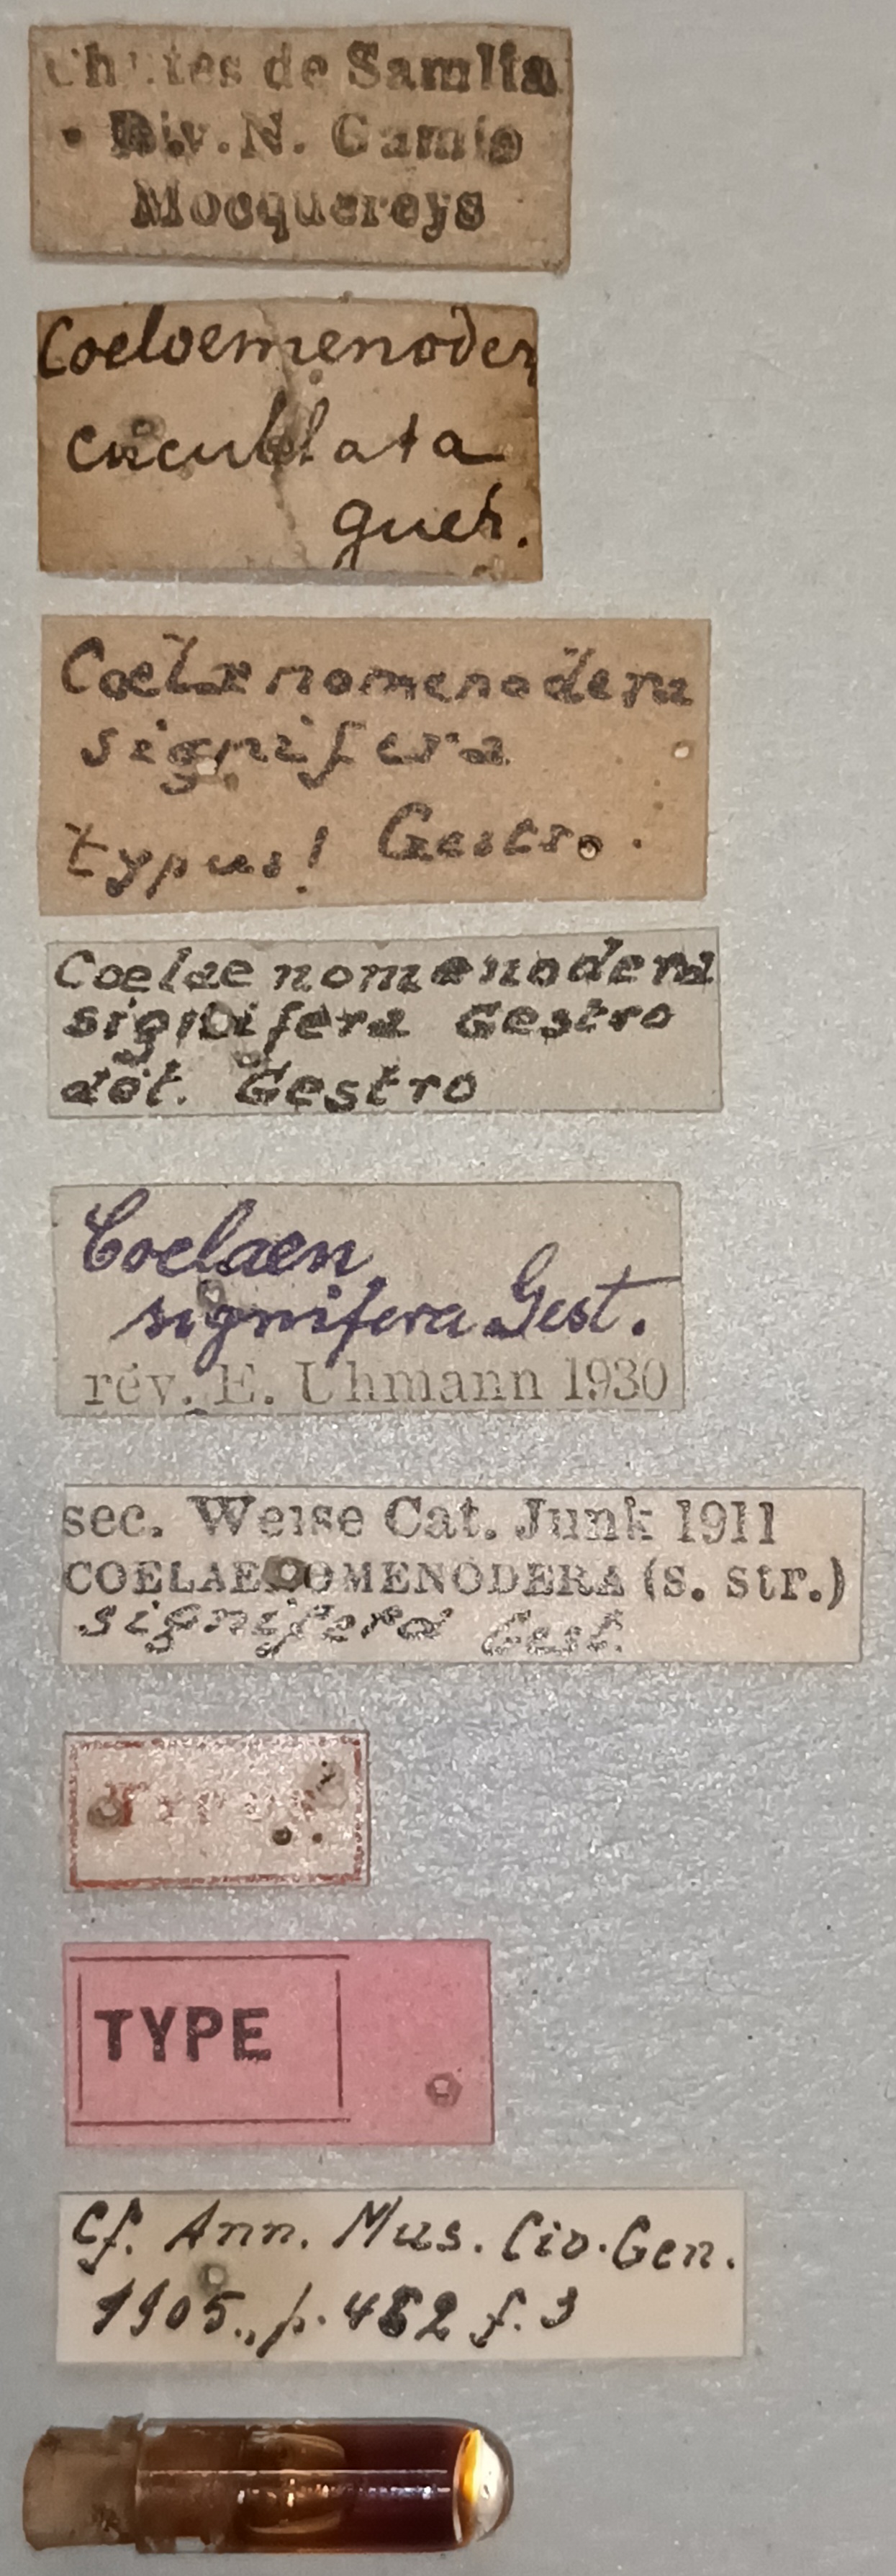 Chutes de Samlia
Riv. N. Gamie
Mocquereys
Coeloemenodera
cucullata
guer.
Coelænomenodera
signifera
typus! Gestro.
Coelaenomenodera
signifera Gestro
det. Gestro
Coelaen
signifera Gest.
rev. E. Uhmann 1930
sec. Weise Cat. Junk 1911
COELAENOMENODERA (s. str.)
signifera Gest.
TYPE
Cf. Ann. Mus. Civ. Gen.
1905., p. 482 f. 3